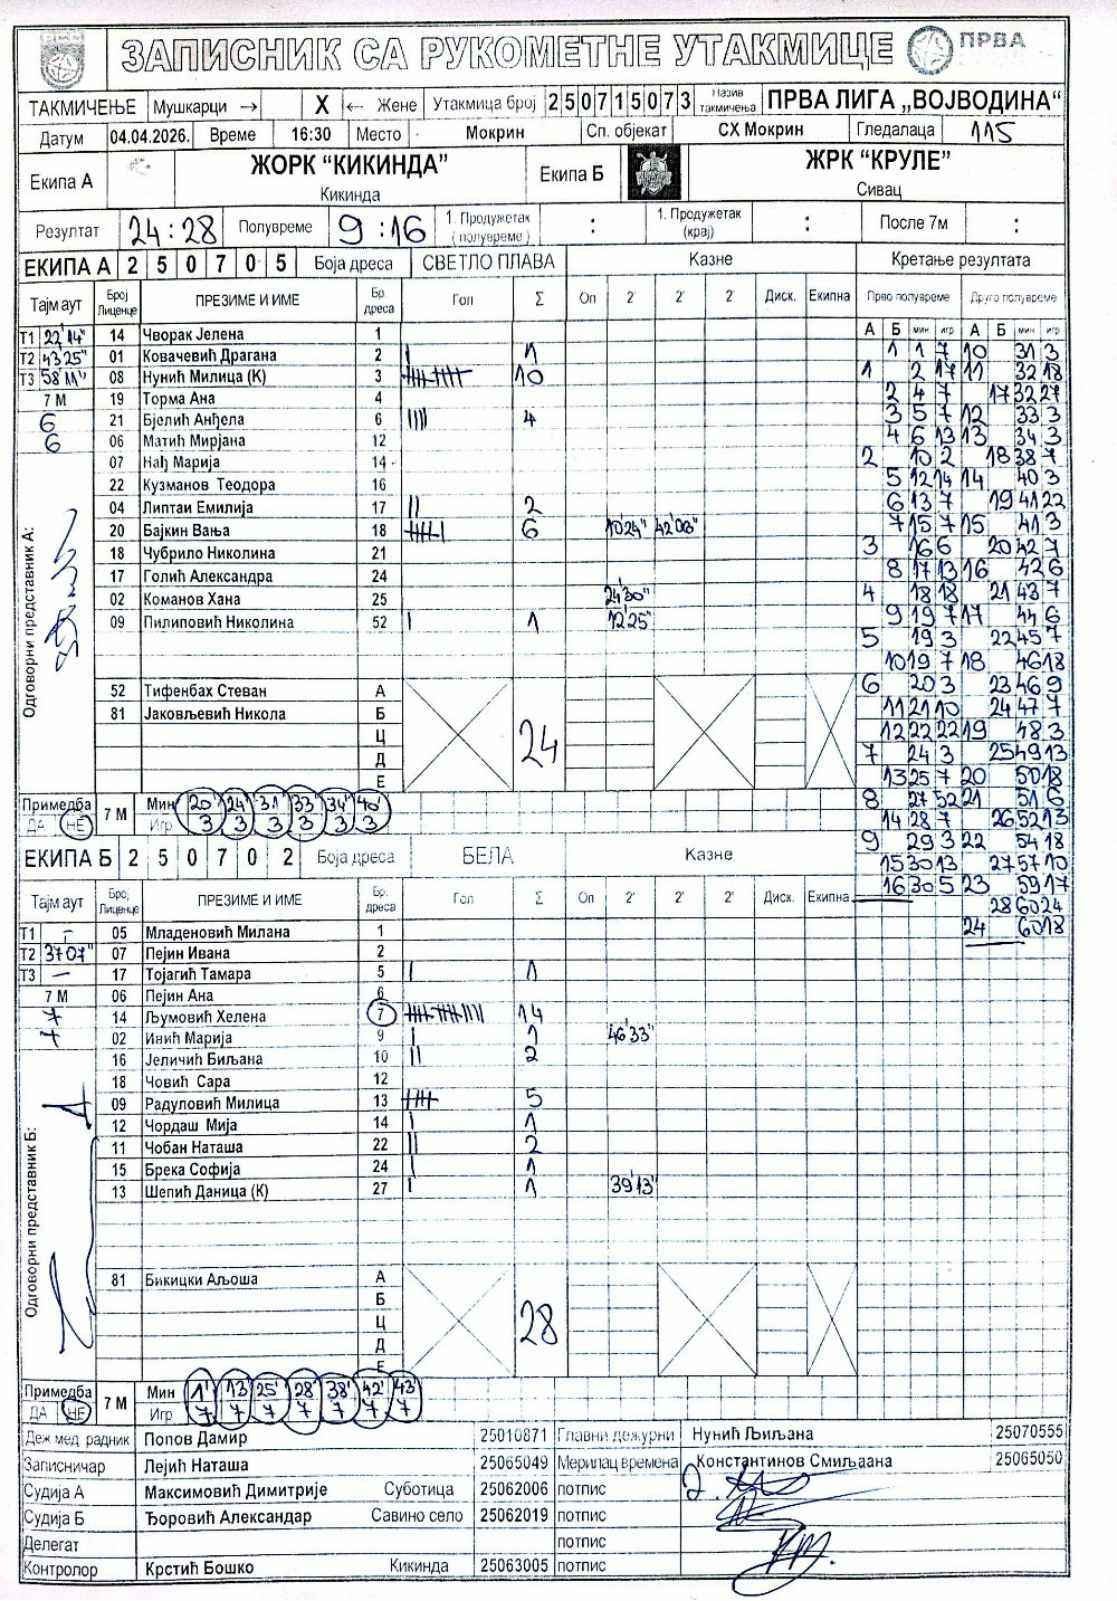 ЗАПИСНИК СА РУКОМЕТНЕ УТАКМИЦЕ ПРВА
ТАКМИЧЕЊЕ Мушкарци → X ← Жене Утакмица број 250715073 Назив такмичења ПРВА ЛИГА „ВОЈВОДИНА“
Датум 04.04.2026. Време 16:30 Место Мокрин Сп. објекат СХ Мокрин Гледалаца 115
Екипа А ЖОРК “КИКИНДА” Кикинда Екипа Б ЖРК “КРУЛЕ” Сивац
Резултат 24:28 Полувреме 9:16 1. Продужетак (полувреме) : 1. Продужетак (крај) : После 7м :
ЕКИПА А 250705 Боја дреса СВЕТЛО ПЛАВА Казне Кретање резултата
Тајм аут Број Лиценце ПРЕЗИМЕ И ИМЕ Бр. дреса Гол Σ Оп 2' 2' 2' Диск. Екипна Прво полувреме Друго полувреме
А Б мин игр А Б мин игр
Т1 22'14" 14 Чворак Јелена 1
1 1 7 10 31 3
Т2 43'25" 01 Ковачевић Драгана 2 | 1
1 2 17 11 32 18
Т3 58'11" 08 Нунић Милица (К) 3 10
2 4 7 17 32 27
7 М 19 Торма Ана 4
3 5 7 12 33 3
6 21 Бјелић Анђела 6 |||| 4
4 6 13 13 34 3
6 06 Матић Мирјана 12
2 10 2 18 38 7
07 Нађ Марија 14
5 12 14 14 40 3
22 Кузманов Теодора 16
6 13 7 19 41 22
04 Липтаи Емилија 17 || 2
7 15 7 15 41 3
20 Бајкин Вања 18 6 10'24" 42'03"
3 16 6 20 42 7
18 Чубрило Николина 21
8 17 13 16 42 6
17 Голић Александра 24
4 18 18 21 43 7
02 Команов Хана 25 24'30"
9 19 7 17 44 6
09 Пилиповић Николина 52 | 1 12'25"
5 19 3 22 45 7
10 19 7 18 46 18
52 Тифенбах Стеван А
6 20 3 23 46 9
81 Јаковљевић Никола Б 24
11 21 10 24 47 7
Ц
12 22 22 19 48 3
Д
7 24 3 25 49 13
Е
13 25 7 20 50 18
Примедба ДА НЕ 7 М Мин 20' 24' 31' 33' 34' 40'
8 27 52 21 51 6
Игр 3 3 3 3 3 3
14 28 7 26 52 13
9 29 3 22 54 18
ЕКИПА Б 250702 Боја дреса БЕЛА Казне
15 30 13 27 57 10
16 30 5 23 59 17
Тајм аут Број Лиценце ПРЕЗИМЕ И ИМЕ Бр. дреса Гол Σ Оп 2' 2' 2' Диск. Екипна
28 60 24
24 60 18
Т1 – 05 Младеновић Милана 1
Т2 37'07" 07 Пејин Ивана 2
Т3 – 17 Тојагић Тамара 5 | 1
7 М 06 Пејин Ана 6
7 14 Љумовић Хелена 7 14
7 02 Инић Марија 9 | 1 46'33"
16 Јеличић Биљана 10 || 2
18 Човић Сара 12
09 Радуловић Милица 13 5
12 Чордаш Мија 14 | 1
11 Чобан Наташа 22 || 2
15 Брека Софија 24 | 1
13 Шепић Даница (К) 27 | 1 39'13"
81 Бикицки Аљоша А
Б
Ц 28
Д
Е
Примедба ДА НЕ 7 М Мин 1' 13' 25' 28' 38' 42' 43'
Игр 7 7 7 7 7 7 7
Одговорни представник А:
Одговорни представник Б:
Деж.мед. радник Попов Дамир 25010871 Главни дежурни Нунић Љиљана 25070555
Записничар Лејић Наташа 25065049 Мерилац времена Константинов Смиљаана 25065050
Судија А Максимовић Димитрије Суботица 25062006 потпис
Судија Б Ђоровић Александар Савино село 25062019 потпис
Делегат потпис
Контролор Крстић Бошко Кикинда 25063005 потпис